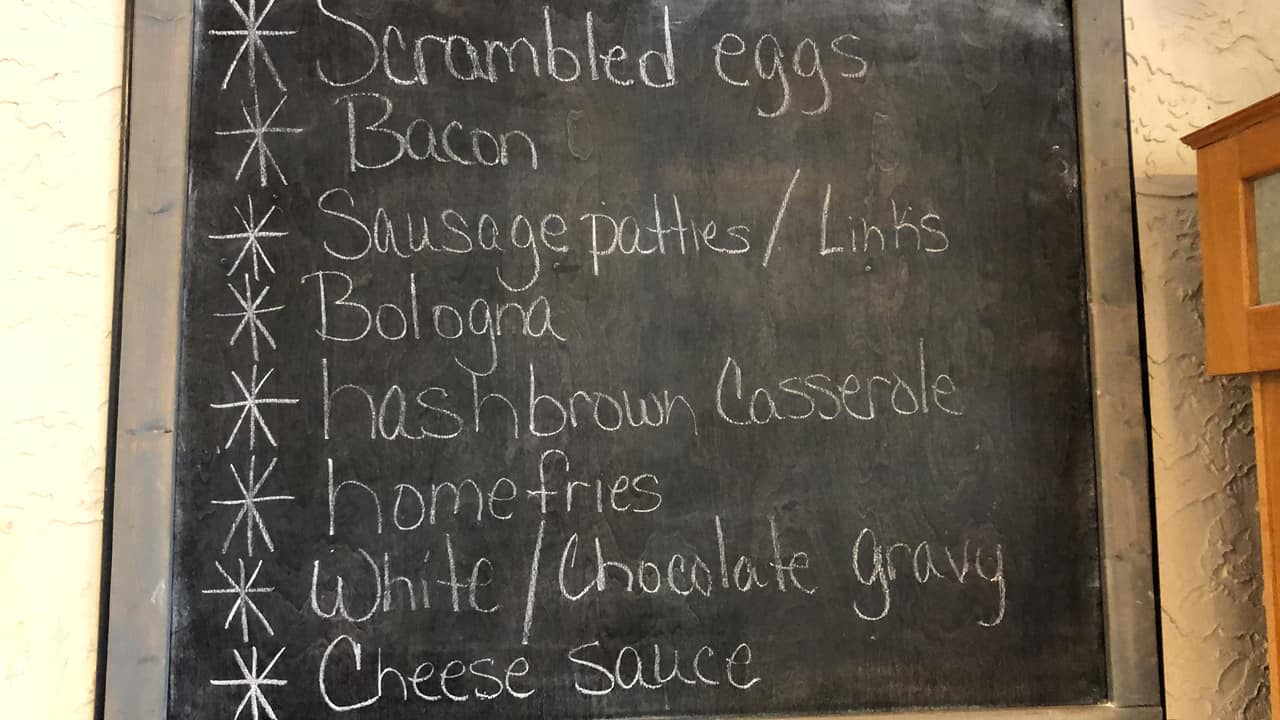 * Scrambled eggs
* Bacon
* Sausage patties / Links
* Bologna
* hashbrown Casserole
* homefries
* White / Chocolate gravy
* Cheese sauce